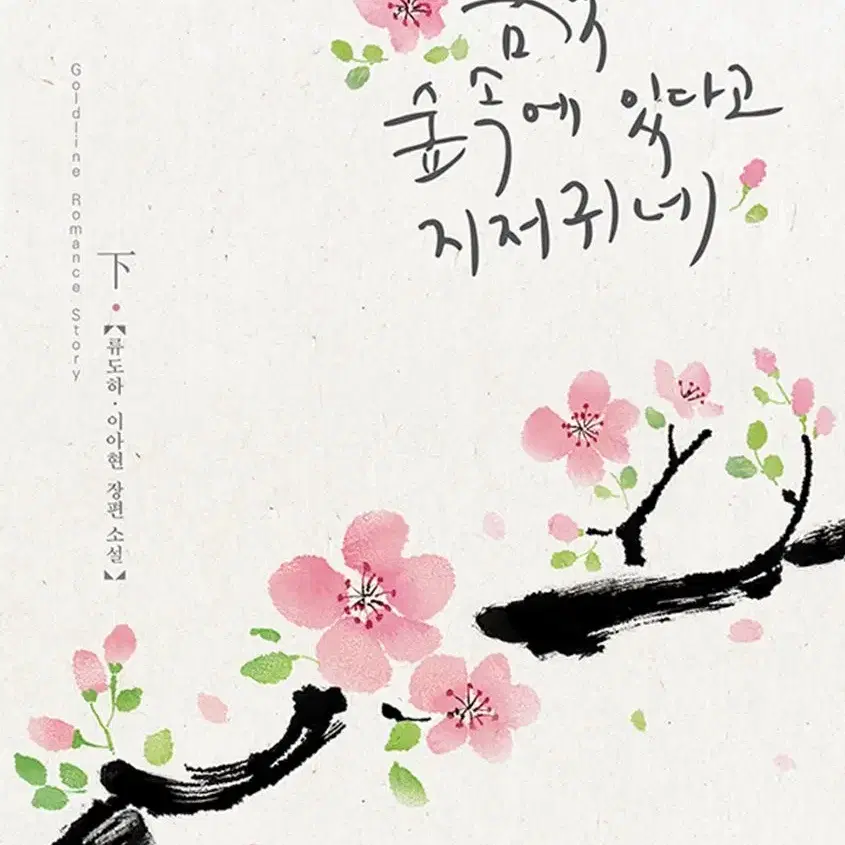 숲속에 있다고
지저귀네
Goldline Romance Story
下
【류도하 · 이아현 장편 소설】